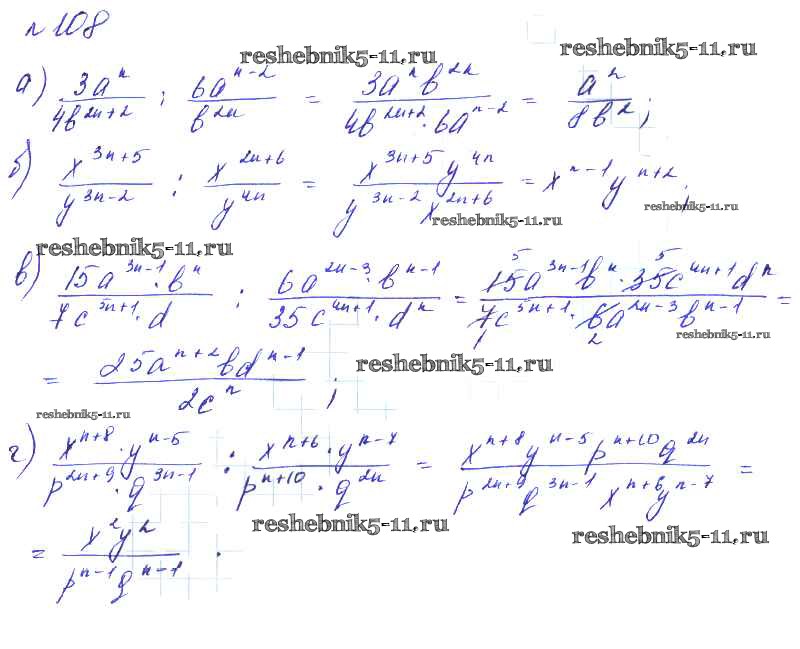 №108
reshebnik5-11.ru reshebnik5-11.ru
а) 3a^n / 4b^(2n+2) : 6a^(n-2) / b^(2n) = 3a^n b^(2n) / 4b^(2n+2) · 6a^(n-2) = a^2 / 8b^2 ;
б) x^(3n+5) / y^(3n-2) : x^(2n+6) / y^(4n) = x^(3n+5) y^(4n) / y^(3n-2) x^(2n+6) = x^(n-1) y^(n+2) ;
reshebnik5-11.ru reshebnik5-11.ru
reshebnik5-11.ru
в) 15a^(3n-1) · b^n / 7c^(5n+1) · d : 6a^(2n-3) · b^(n-1) / 35c^(4n+1) · d^n = 5 15a^(3n-1) b^n · 5 35c^(4n+1) d^n / 1 7c^(5n+1) · 2 6a^(2n-3) b^(n-1) =
reshebnik5-11.ru
= 25a^(n+2) b d^(n-1) / 2c^n ;
reshebnik5-11.ru
reshebnik5-11.ru
г) x^(n+8) · y^(n-5) / p^(2n+9) · q^(3n-1) : x^(n+6) · y^(n-7) / p^(n+10) · q^(2n) = x^(n+8) y^(n-5) p^(n+10) q^(2n) / p^(2n+9) q^(3n-1) x^(n+6) y^(n-7) =
reshebnik5-11.ru reshebnik5-11.ru
= x^2 y^2 / p^(n-1) q^(n-1) .